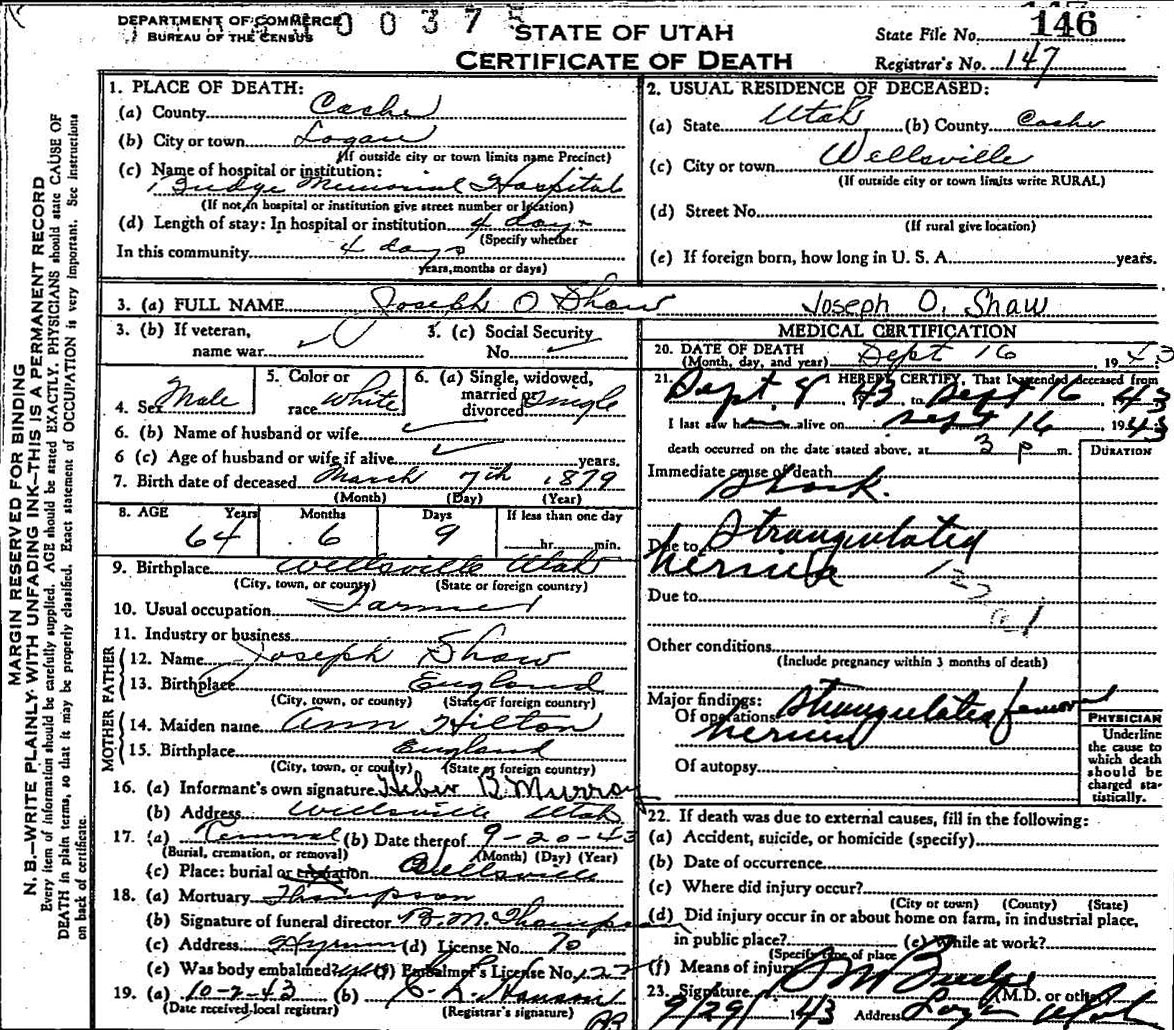 DEPARTMENT OF COMMERCE
BUREAU OF THE CENSUS
0 0 3 7
STATE OF UTAH
CERTIFICATE OF DEATH
State File No. 146
Registrar's No. 147
MARGIN RESERVED FOR BINDING
N. B.—WRITE PLAINLY WITH UNFADING INK—THIS IS A PERMANENT RECORD
Every item of information should be carefully supplied. AGE should be stated EXACTLY. PHYSICIANS should state CAUSE OF
DEATH in plain terms, so that it may be properly classified. Exact statement of OCCUPATION is very important. See instructions
on back of certificate.
1. PLACE OF DEATH:
(a) County Cache
(b) City or town Logan
(If outside city or town limits name Precinct)
(c) Name of hospital or institution:
Budge Memorial Hospital
(If not in hospital or institution give street number or location)
(d) Length of stay: In hospital or institution 4 days
(Specify whether
In this community 4 days
years, months or days)
2. USUAL RESIDENCE OF DECEASED:
(a) State Utah (b) County Cache
(c) City or town Wellsville
(If outside city or town limits write RURAL)
(d) Street No.
(If rural give location)
(e) If foreign born, how long in U. S. A. years.
3. (a) FULL NAME Joseph O Shaw Joseph O. Shaw
3. (b) If veteran,
name war
3. (c) Social Security
No.
4. Sex Male
5. Color or
race White
6. (a) Single, widowed,
married or
divorced Single
6. (b) Name of husband or wife
6 (c) Age of husband or wife if alive years.
7. Birth date of deceased March 7th 1879
(Month) (Day) (Year)
8. AGE Years Months Days If less than one day
64 6 9 hr. min.
9. Birthplace Wellsville Utah
(City, town, or county) (State or foreign country)
10. Usual occupation Farmer
11. Industry or business
FATHER
12. Name Joseph Shaw
13. Birthplace England
(City, town, or county) (State or foreign country)
MOTHER
14. Maiden name Ann Hilton
15. Birthplace England
(City, town, or county) (State or foreign country)
16. (a) Informant's own signature Heber B Murray
(b) Address Wellsville Utah
17. (a) Removal (b) Date thereof 9-20-43
(Burial, cremation, or removal) (Month) (Day) (Year)
(c) Place: burial or cremation Wellsville
18. (a) Mortuary Thompson
(b) Signature of funeral director B. M. Thompson
(c) Address Hyrum (d) License No. 70
(e) Was body embalmed? yes (f) Embalmer's License No. 122
19. (a) 10-2-43 (b) C. L. Hansen
(Date received local registrar) (Registrar's signature)
MEDICAL CERTIFICATION
20. DATE OF DEATH
(Month, day, and year) Sept 16, 1943
21. I HEREBY CERTIFY, That I attended deceased from
Sept. 8 43, to Sept 16 43
I last saw h alive on Sept 16 1943
death occurred on the date stated above, at 3 p m.
DURATION
Immediate cause of death
Shock.
Due to Strangulated
hernia
Due to
Other conditions
(Include pregnancy within 3 months of death)
Major findings:
Of operations Strangulated femoral
hernia
Of autopsy
PHYSICIAN
Underline
the cause to
which death
should be
charged sta-
tistically.
22. If death was due to external causes, fill in the following:
(a) Accident, suicide, or homicide (specify)
(b) Date of occurrence
(c) Where did injury occur?
(City or town) (County) (State)
(d) Did injury occur in or about home on farm, in industrial place,
in public place? (e) While at work?
(Specify type of place
(f) Means of injury
23. Signature Budge (M.D. or other)
9/29/43 Address Logan Utah